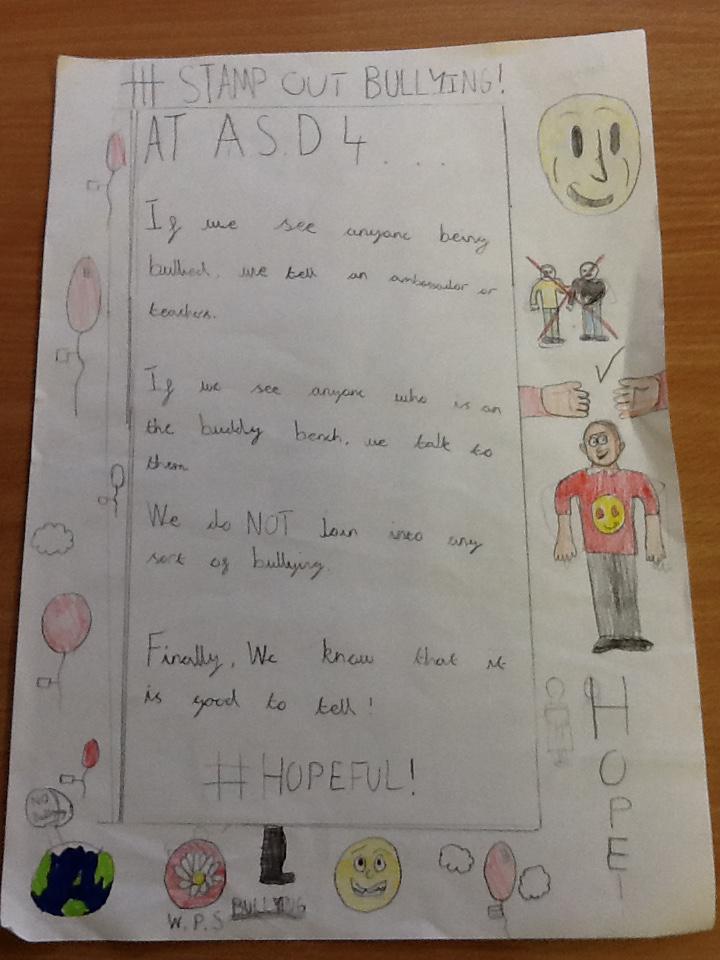 # STAMP OUT BULLYING!
AT A.S.D 4 . . .
If we see anyone being
bullied, we tell an ambassador or
teachers.
If we see anyone who is on
the buddy bench, we talk to
them
We do NOT join into any
sort of bullying.
Finally, We know that it
is good to tell!
#HOPEFUL!
HOPE!
NO
Bullying
W.P.S
BULLYING